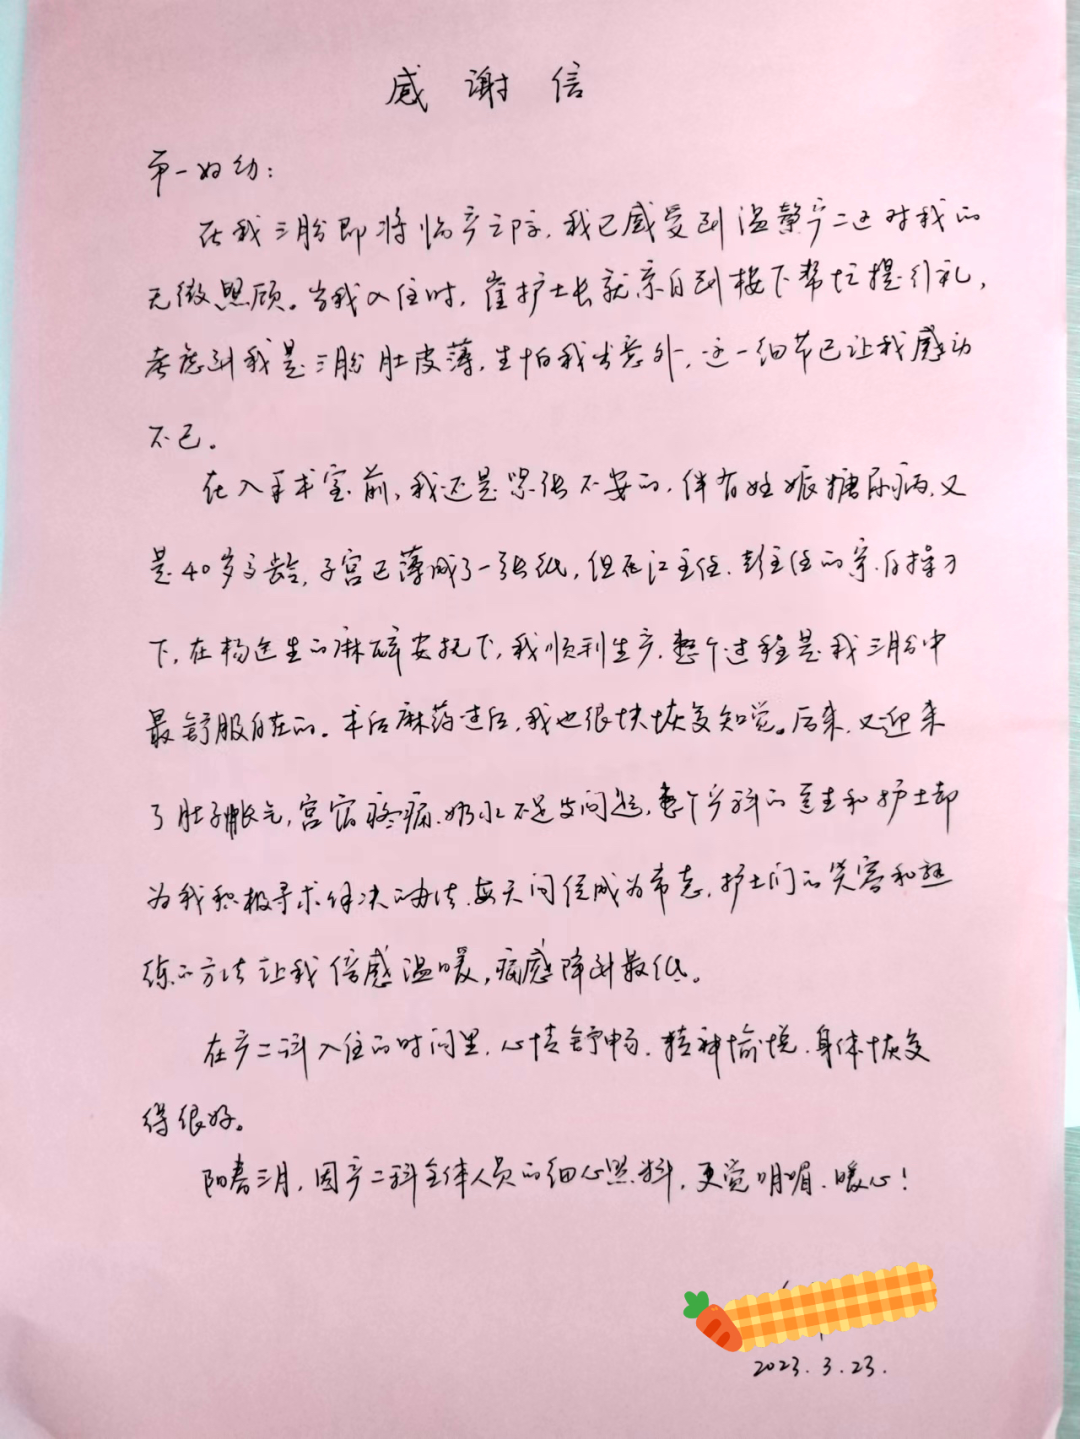 感谢信
市一妇幼：
在我三胎即将临产之际，我已感受到温馨产二区对我的
无微照顾。当我入住时，崔护士长就亲自到楼下帮忙提行礼，
考虑到我是三胎肚皮薄，生怕我出意外，这一细节已让我感动
不已。
在入手术室前，我还是紧张不安的，伴有妊娠糖尿病，又
是40岁高龄，子宫已薄成了一张纸，但在江主任、彭主任的亲自操刀
下，在杨医生的麻醉安抚下，我顺利生产，整个过程是我三胎中
最舒服自在的。术后麻药过后，我也很快恢复知觉。后来，又迎来
了肚子胀气，宫缩疼痛、奶水不足等问题，整个产科的医生和护士都
为我积极寻求解决办法，每天问侯成为常态，护士们的笑容和熟
练的方法让我倍感温暖，痛感降到最低。
在产二科入住的时间里，心情舒畅，精神愉悦，身体恢复
得很好。
阳春三月，因产二科全体人员的细心照料，更觉明媚、暖心！
2023.3.23.